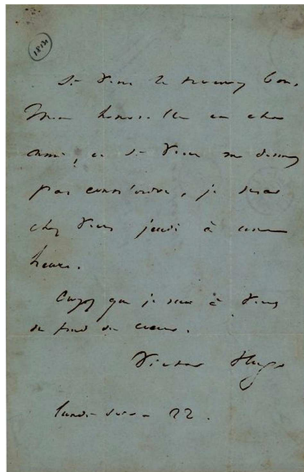 Si Vous le trouvez bon,
Mon honorable et cher
ami, et si Vous ne donnez
pas contr'ordre, je serai
chez Vous jeudi à
heure.
Croyez que je suis à Vous
du fond du cœur.
Victor Hugo
lundi soir 22.